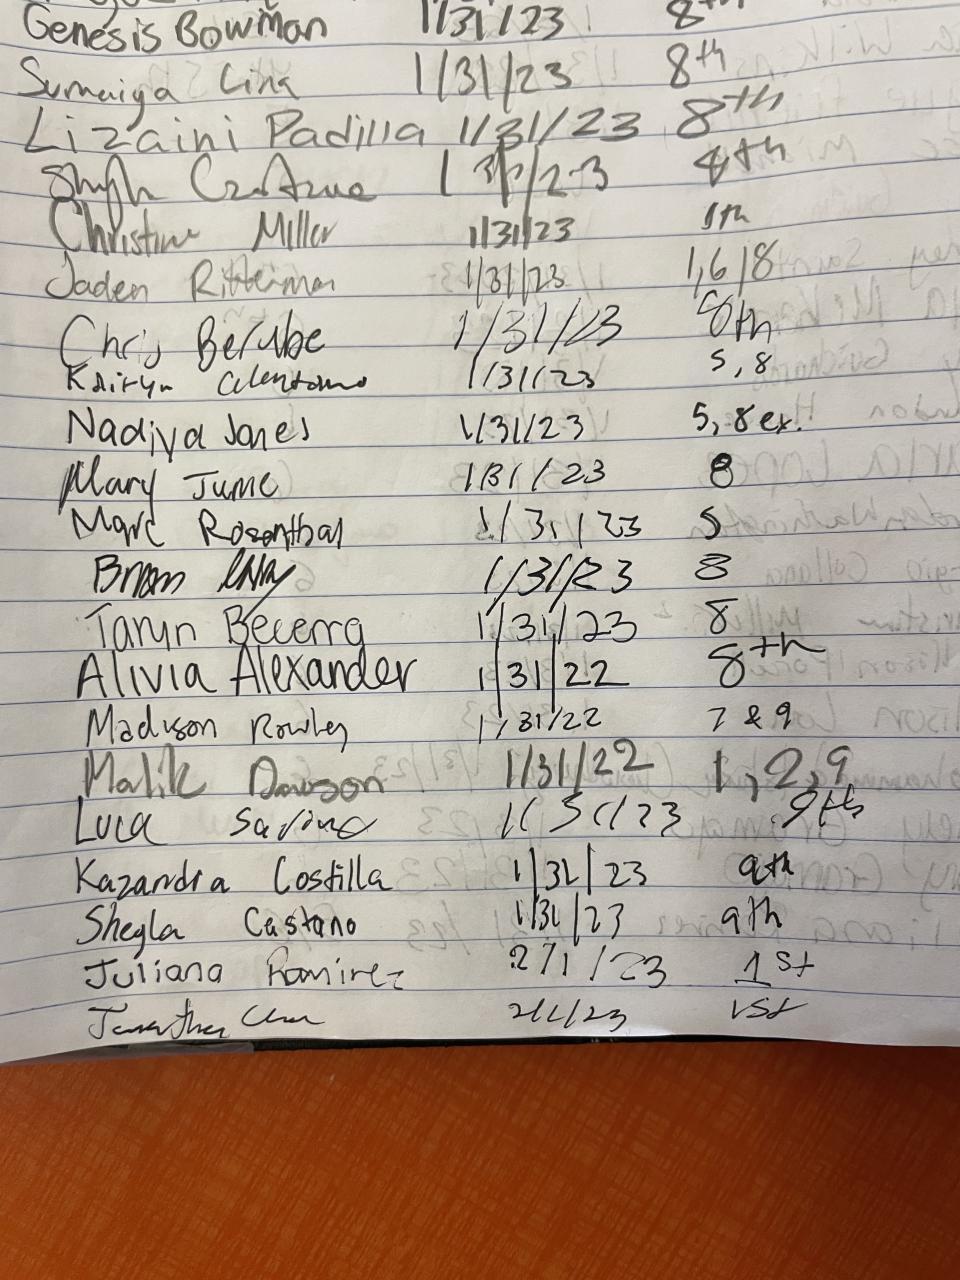 Genesis Bowman 1/31/23 8th
Sumaiya 1/31/23 8th
Lizaini Padilla 1/31/23 8th
1/31/23 8th
Christine Miller 1/31/23 8th
Jaden Ritterman 1/31/23 1,6/8
Chris Berube 1/31/23 8th
1/31/23 5,8
Nadiya Jones 1/31/23 5, 8 ex.
Mary June 1/31/23 8
Marc Rosenthal 1/31/23 5
1/31/23 8
Taryn Becerra 1/31/23 8
Alivia Alexander 1/31/22 8th
Madison Rowley 1/31/22 7 & 9
Malik Dawson 1/31/22 1,2,9
Luca 1/31/23 9th
Kazandra Costilla 1/31/23 9th
Sheyla Castano 1/31/23 9th
Juliana Ramirez 2/1/23 1st
2/1/23 1st